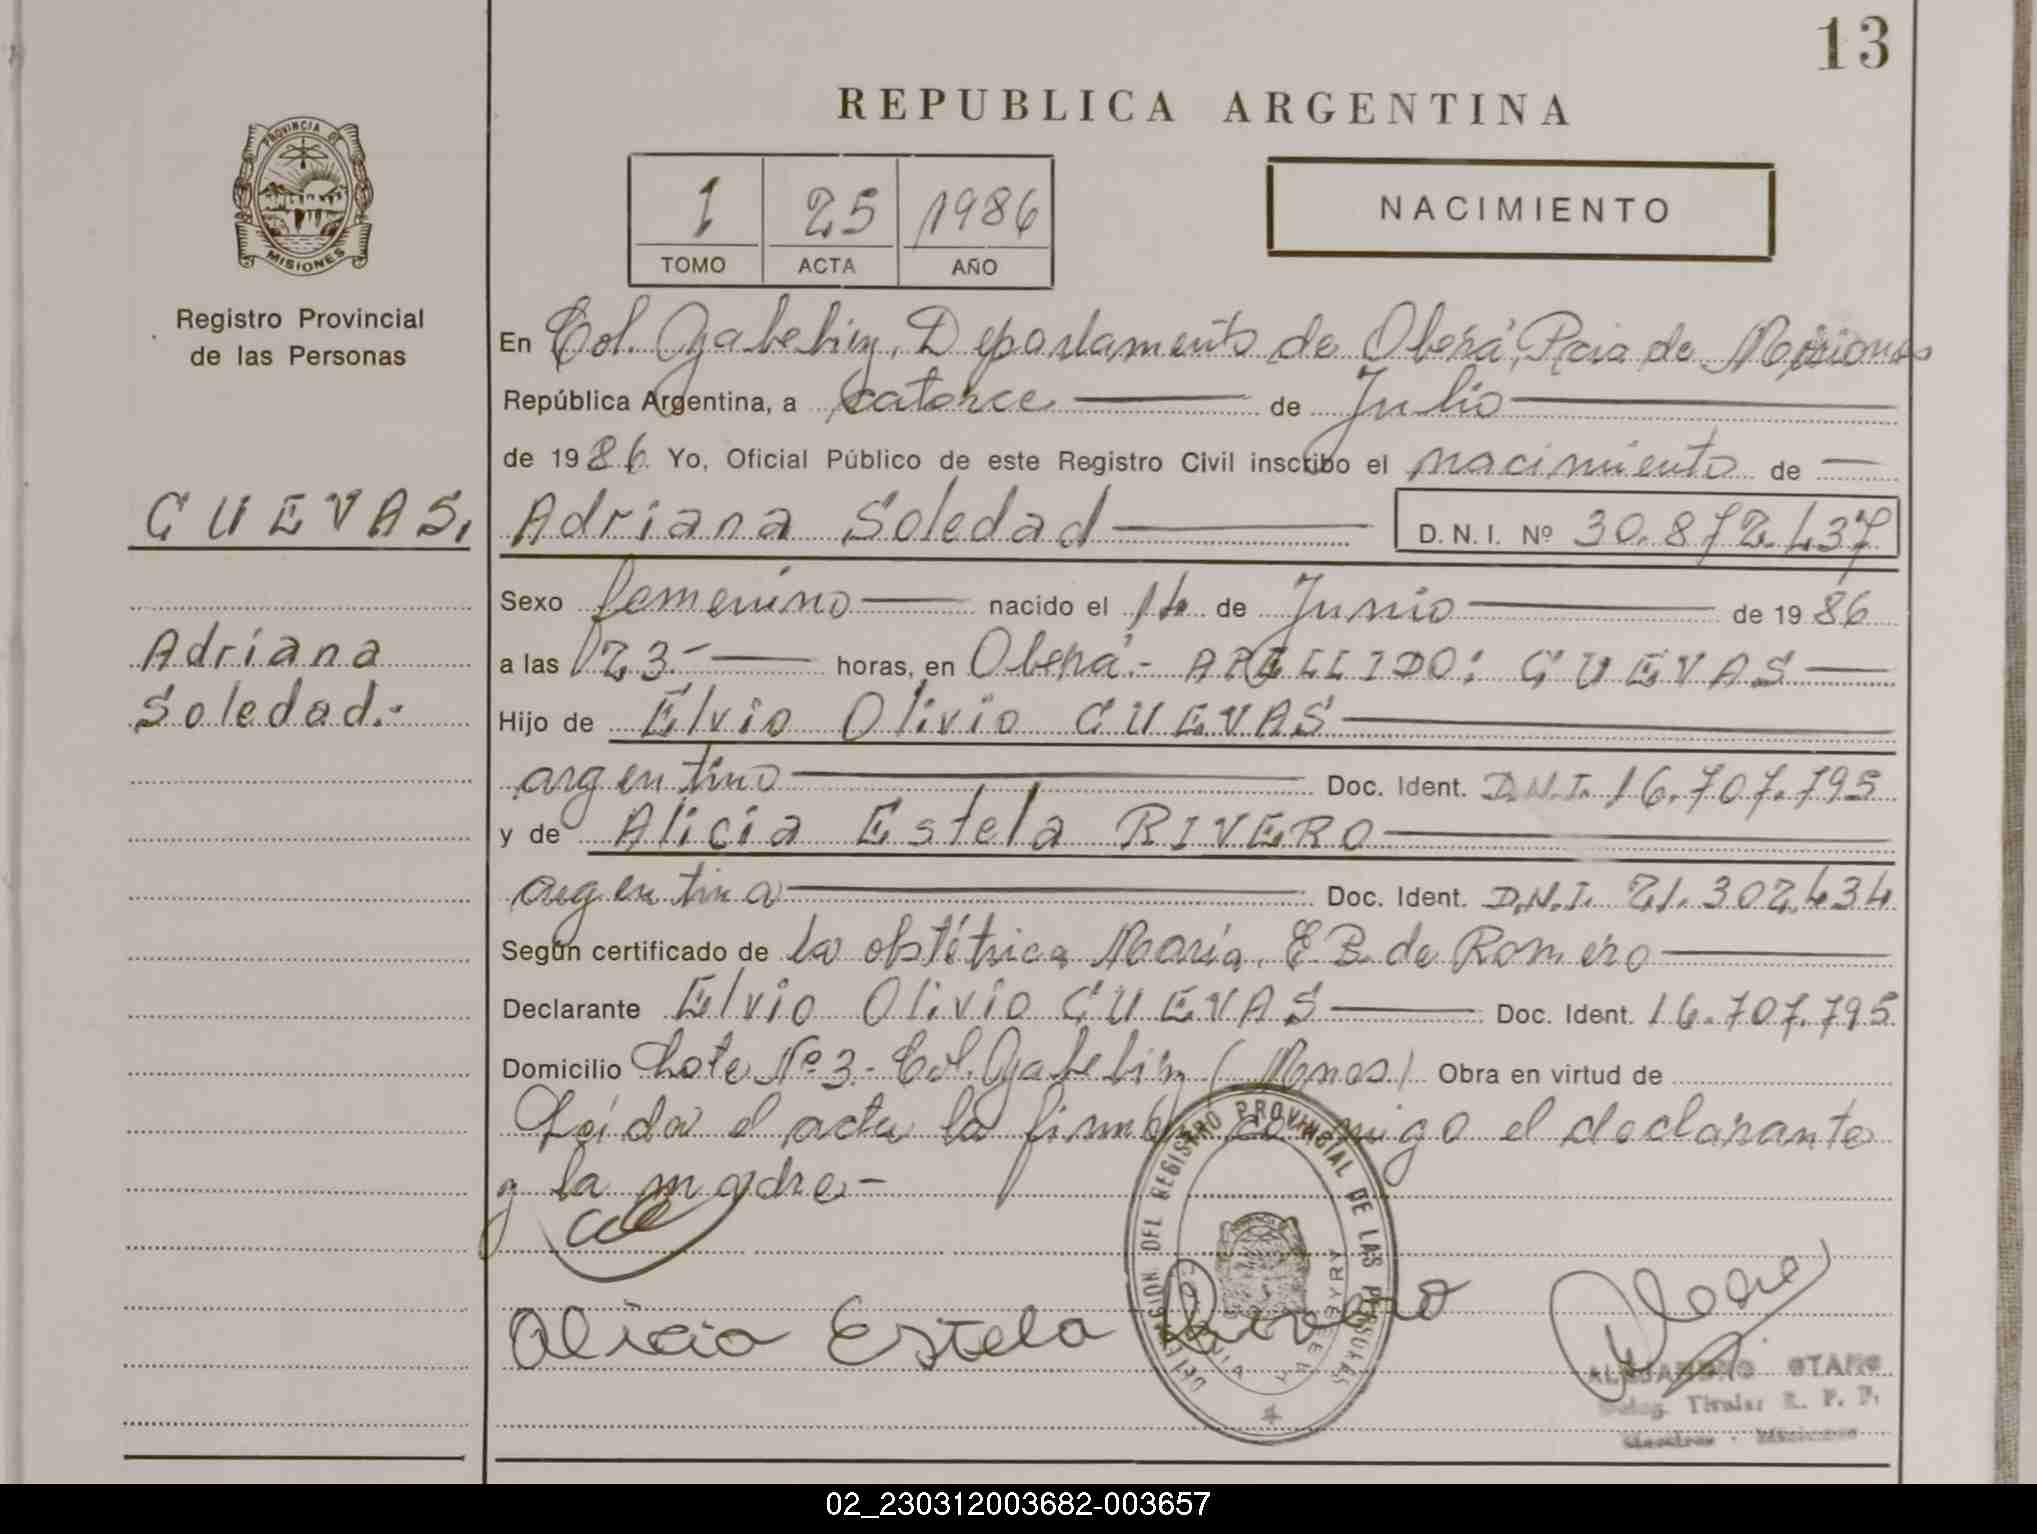 13
REPUBLICA ARGENTINA
PROVINCIA DE
MISIONES
Registro Provincial
de las Personas
1 25 1986
TOMO ACTA AÑO
NACIMIENTO
En Col. Yabebiry, Departamento de Oberá, Pcia de Misiones
República Argentina, a catorce de Julio
de 1986 Yo, Oficial Público de este Registro Civil inscribo el nacimiento de
CUEVAS, Adriana Soledad D.N.I. Nº 30.872.437
Sexo femenino nacido el 14 de Junio de 1986
Adriana
a las 23.- horas, en Oberá.- APELLIDO: CUEVAS
Soledad.-
Hijo de Elvio Olivio CUEVAS
argentino Doc. Ident. D.N.I. 16.707.795
y de Alicia Estela RIVERO
argentina Doc. Ident. D.N.I. 21.302.434
Según certificado de la obstétrica María E.B. de Romero
Declarante Elvio Olivio CUEVAS Doc. Ident. 16.707.795
Domicilio Lote Nº 3.- Col. Yabebiry (Mnes) Obra en virtud de
Leída el acta la firman conmigo el declarante
y la madre.-
DEL REGISTRO PROVINCIAL DE LAS PERSONAS
Alicia Estela Rivero
ALEJANDRO
Deleg. Titular R. P. P.
Misiones
02_230312003682-003657